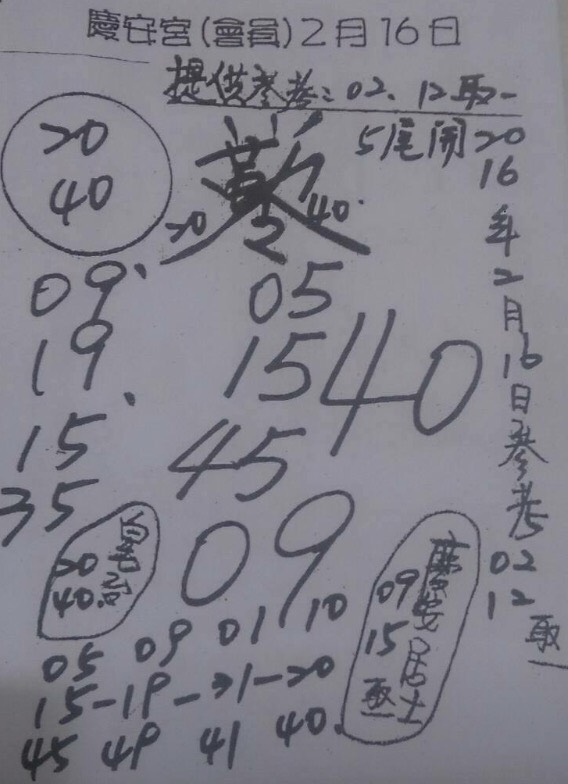 慶安宮(會員)2月16日
提供參考:02、12取一
5尾開
20
40
20 40
09、
19
15、
35
05
15
45
40
09
20
40
20
16
年
2
月
16
日
參
考
02
12
取
一
慶安居士
09
15
取
05 09 01 10
15-19-31-20
45 49 41 40